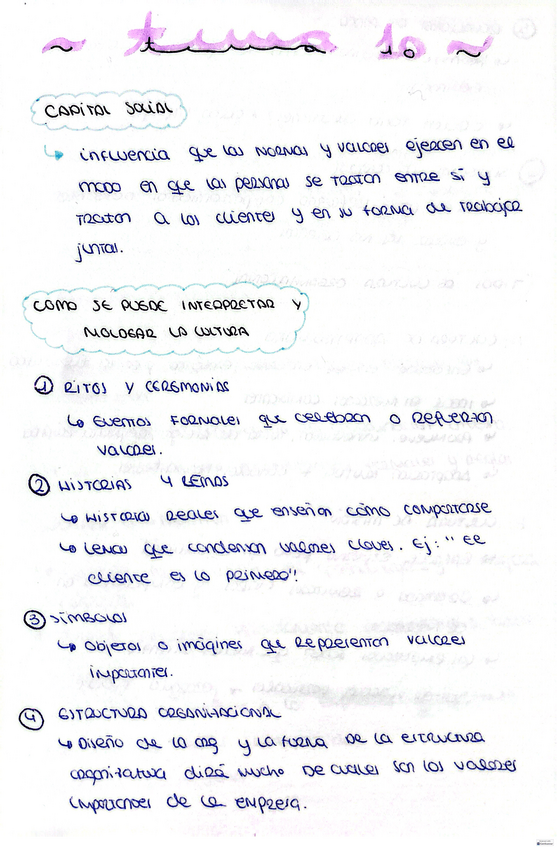 ~ tema 10 ~
CAPITAL SOCIAL
↳ influencia que las normas y valores ejercen en el
modo en que las personas se tratan entre sí y
tratan a los clientes y en su forma de trabajar
juntas.
COMO SE PUEDE INTERPRETAR Y
MOLDEAR LA CULTURA
① RITOS Y CEREMONIAS
↳ Eventos formales que celebran o refuerzan
valores.
② HISTORIAS Y LEMAS
↳ Historias reales que enseñan cómo comportarse
↳ Lemas que condensan valores claves. Ej: "El
cliente es lo primero".
③ SÍMBOLOS
↳ Objetos o imágines que representan valores
importantes.
④ ESTRUCTURA ORGANIZACIONAL
↳ Diseño de la org y la forma de la estructura
organizativa dirá mucho de cuales son los valores
importantes de la empresa.